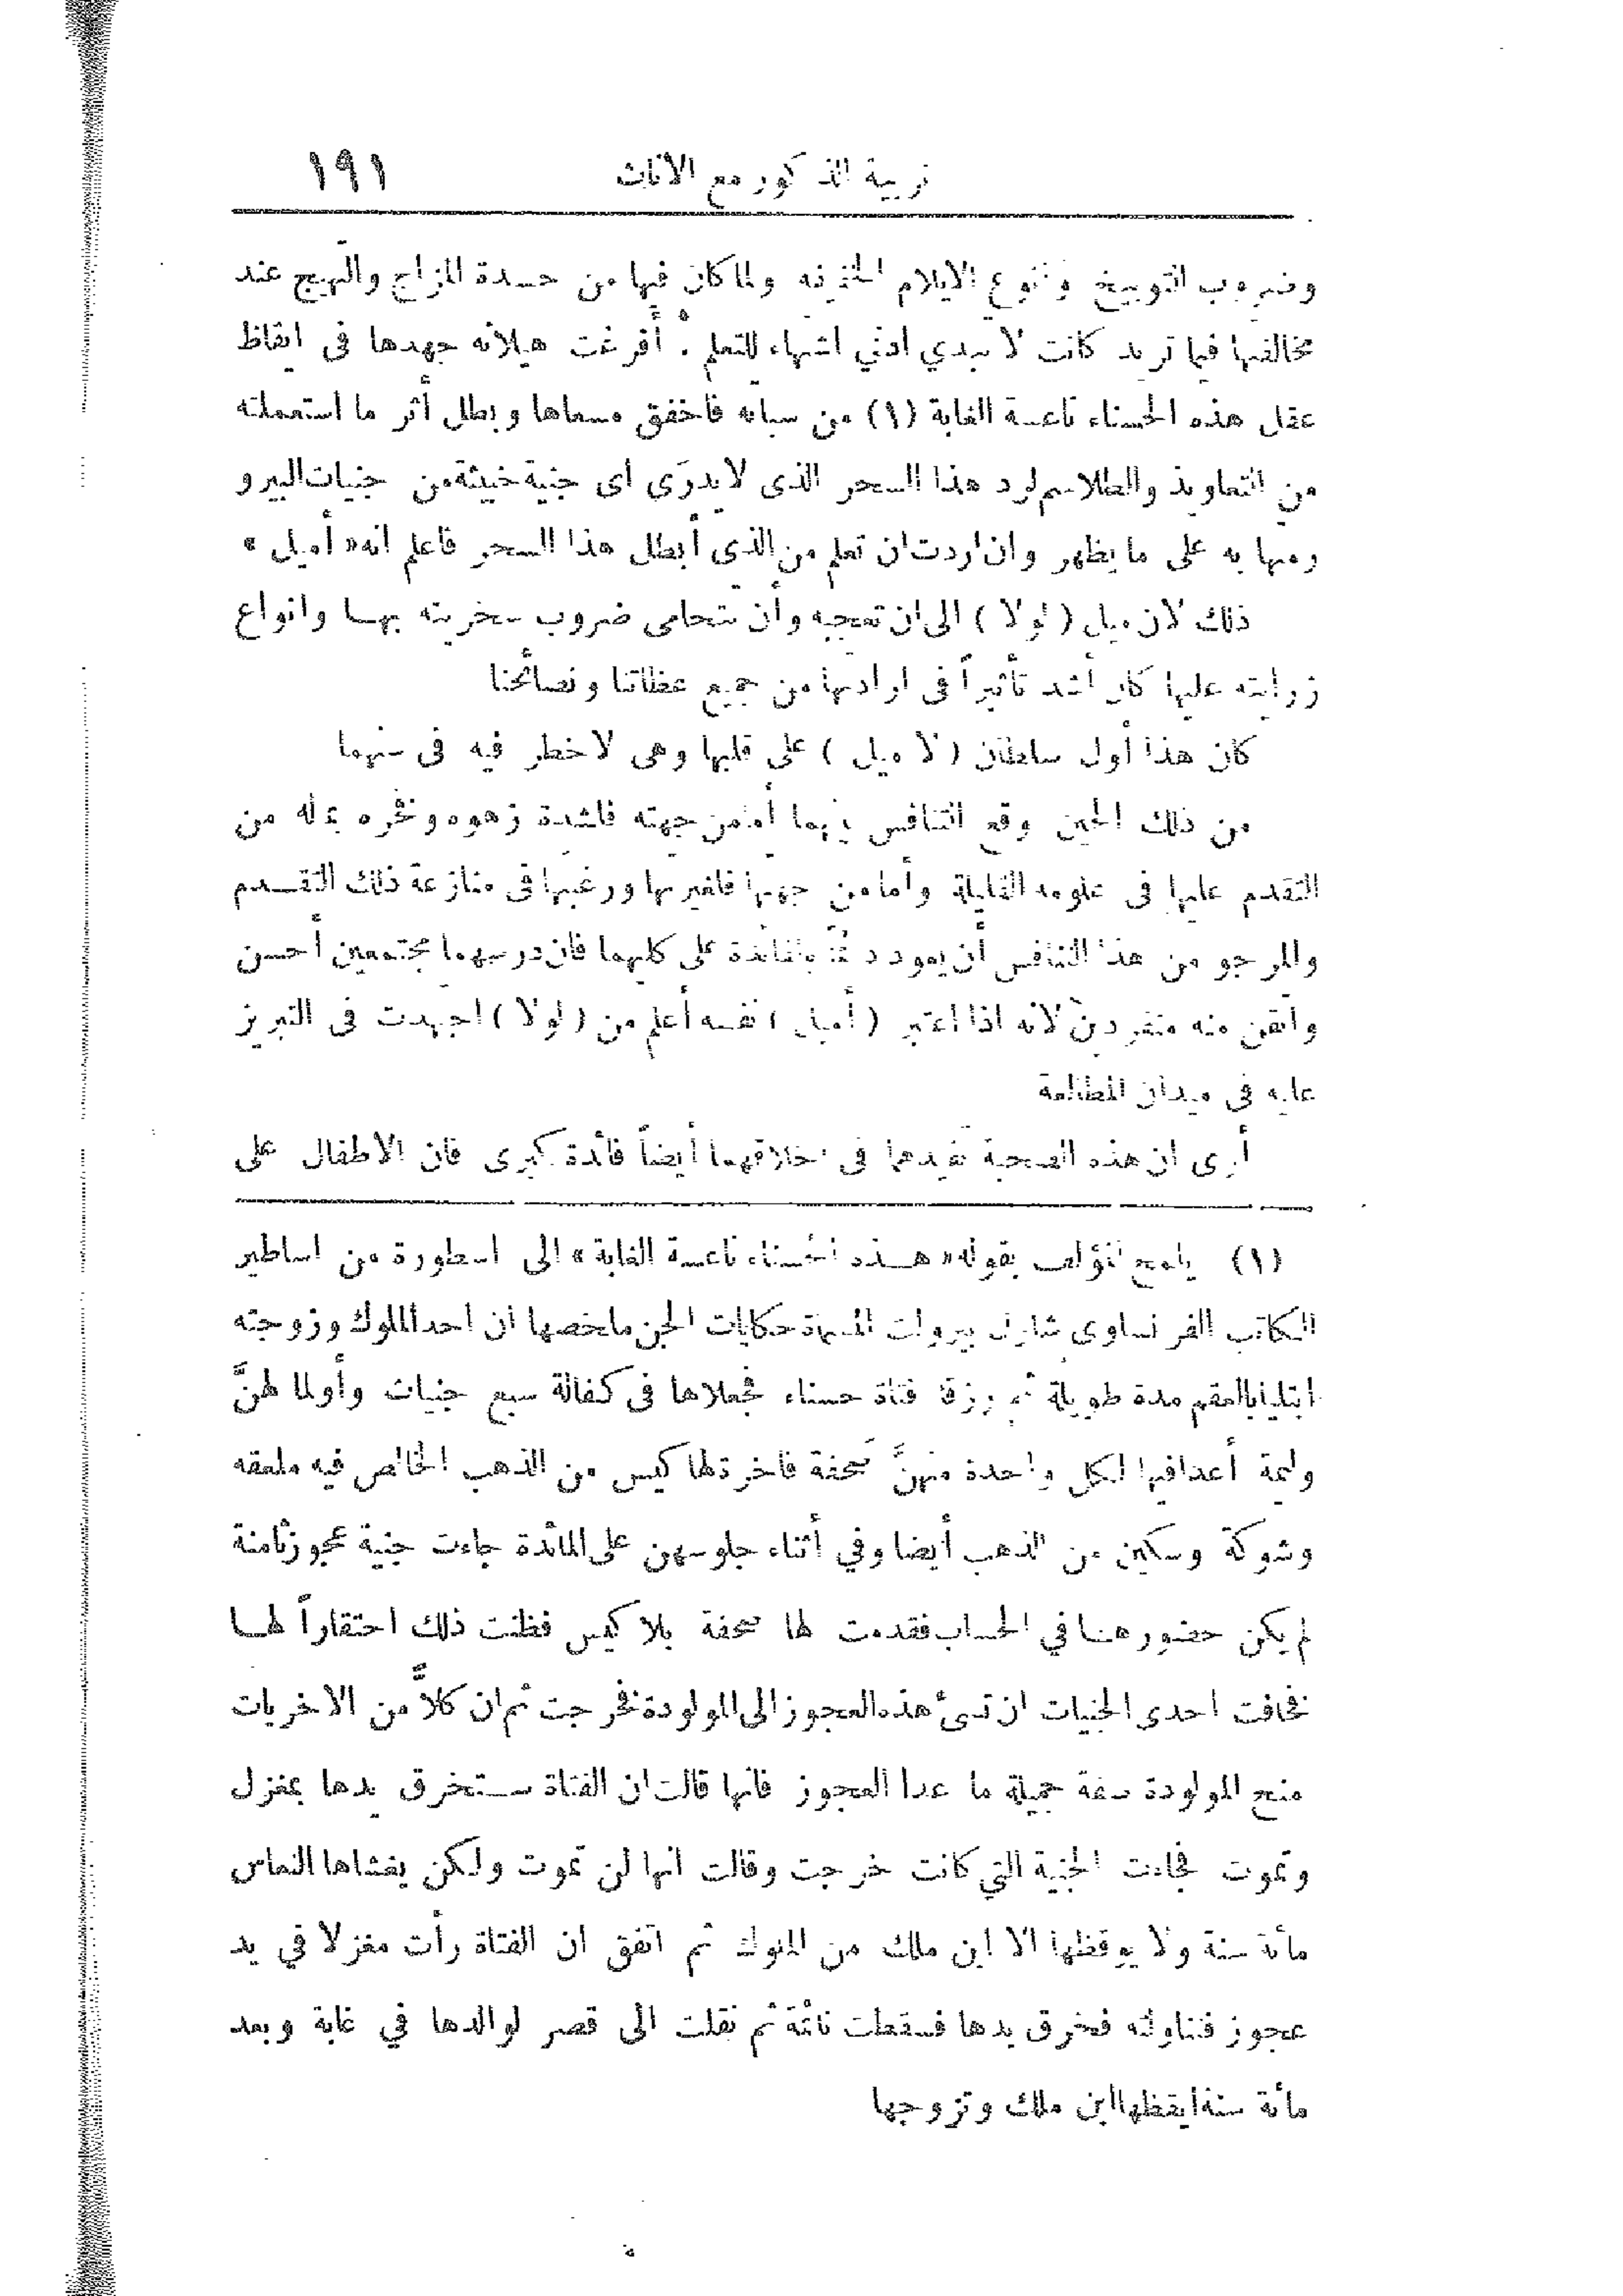 تربية الذكور مع الاناث ١٩١
وضروب التوبيخ وتنوع الايلام الخفيفة ولما كان فيها من حسدة المزاج والتهيج عند
مخالفتها فيما تريد كانت لا تبدي ادنى اشتهاء للتعلم . أفرغت هيلانه جهدها فى ايقاظ
عقل هذه الحسناء ناعسة الغابة (١) من سباته فاخفق مسعاها وبطل أثر ما استعملته
من التعاويذ والطلاسم لرد هذا السحر الذى لا يدرَى اى جنية خبيثة من جنيات البيرو
رمتها به على ما يظهر وان اردت ان تعلم من الذى أبطل هذا السحر فاعلم انه « أميل »
ذلك لان ميل ( لولا ) الى ان تعجبه وأن تتحامى ضروب سخريته بهـا وانواع
زرايته عليها كان أشد تأثيراً فى ارادتها من جميع عظاتنا ونصائحنا
كان هذا أول سلطان ( لا ميل ) على قلبها وهى لا خطر فيه فى سنهما
من ذلك الحين وقع التنافس بينهما أما من جهته فلشدة زهوه وفخره بما له من
التقدم عليها فى علومه القليلة وأما من جهتها فلغيرتها ورغبتها فى منازعة ذلك التقـدم
والمرجو من هذا التنافس أن يعود دائماً بالفائدة على كليهما فان درسهما مجتمعين أحسن
وأتقن منه منفردين لانه اذا اعتبر ( أميل ) نفسه أعلم من ( لولا ) اجتهدت فى التبريز
عليه فى ميدان المطالعة
أرى ان هذه الصحبة تفيدهما فى اخلاقهما أيضاً فائدة كبرى فان الاطفال على
(١) يلمح المؤلف بقوله « هـذه الحسناء ناعسة الغابة » الى اسطورة من اساطير
الكاتب الفرنساوى شارل بيروات المسماة حكايات الجن ملخصها ان احد الملوك وزوجته
ابتليا بالعقم مدة طويلة ثم رزقا فتاة حسناء فجعلاها فى كفالة سبع جنيات وأولما لهنَّ
وليمة أعدا فيها لكل واحدة منهنَّ صحفة فاخرة لها كيس من الذهب الخالص فيه ملعقه
وشوكة وسكين من الذهب أيضا وفي أثناء جلوسهن على المائدة جاءت جنية عجوز ثامنة
لم يكن حضورهـا في الحساب فقدمت لها صحفة بلا كيس فظنت ذلك احتقاراً لهـا
فخافت احدى الجنيات ان تسئ هذه العجوز الى المولودة فخرجت ثم ان كلاًّ من الاخريات
منح المولودة صفة جميلة ما عدا العجوز فانها قالت ان الفتاة ستخرق يدها بمغزل
وتموت فجاءت الجنية التي كانت خرجت وقالت انها لن تموت ولكن يغشاها النعاس
مائة سنة ولا يوقظها الا ابن ملك من الملوك ثم اتفق ان الفتاة رأت مغزلا في يد
عجوز فتناولته فخرق يدها فسقطت نائمة ثم نقلت الى قصر لوالدها في غابة وبعد
مائة سنة ايقظها ابن ملك وتزوجها